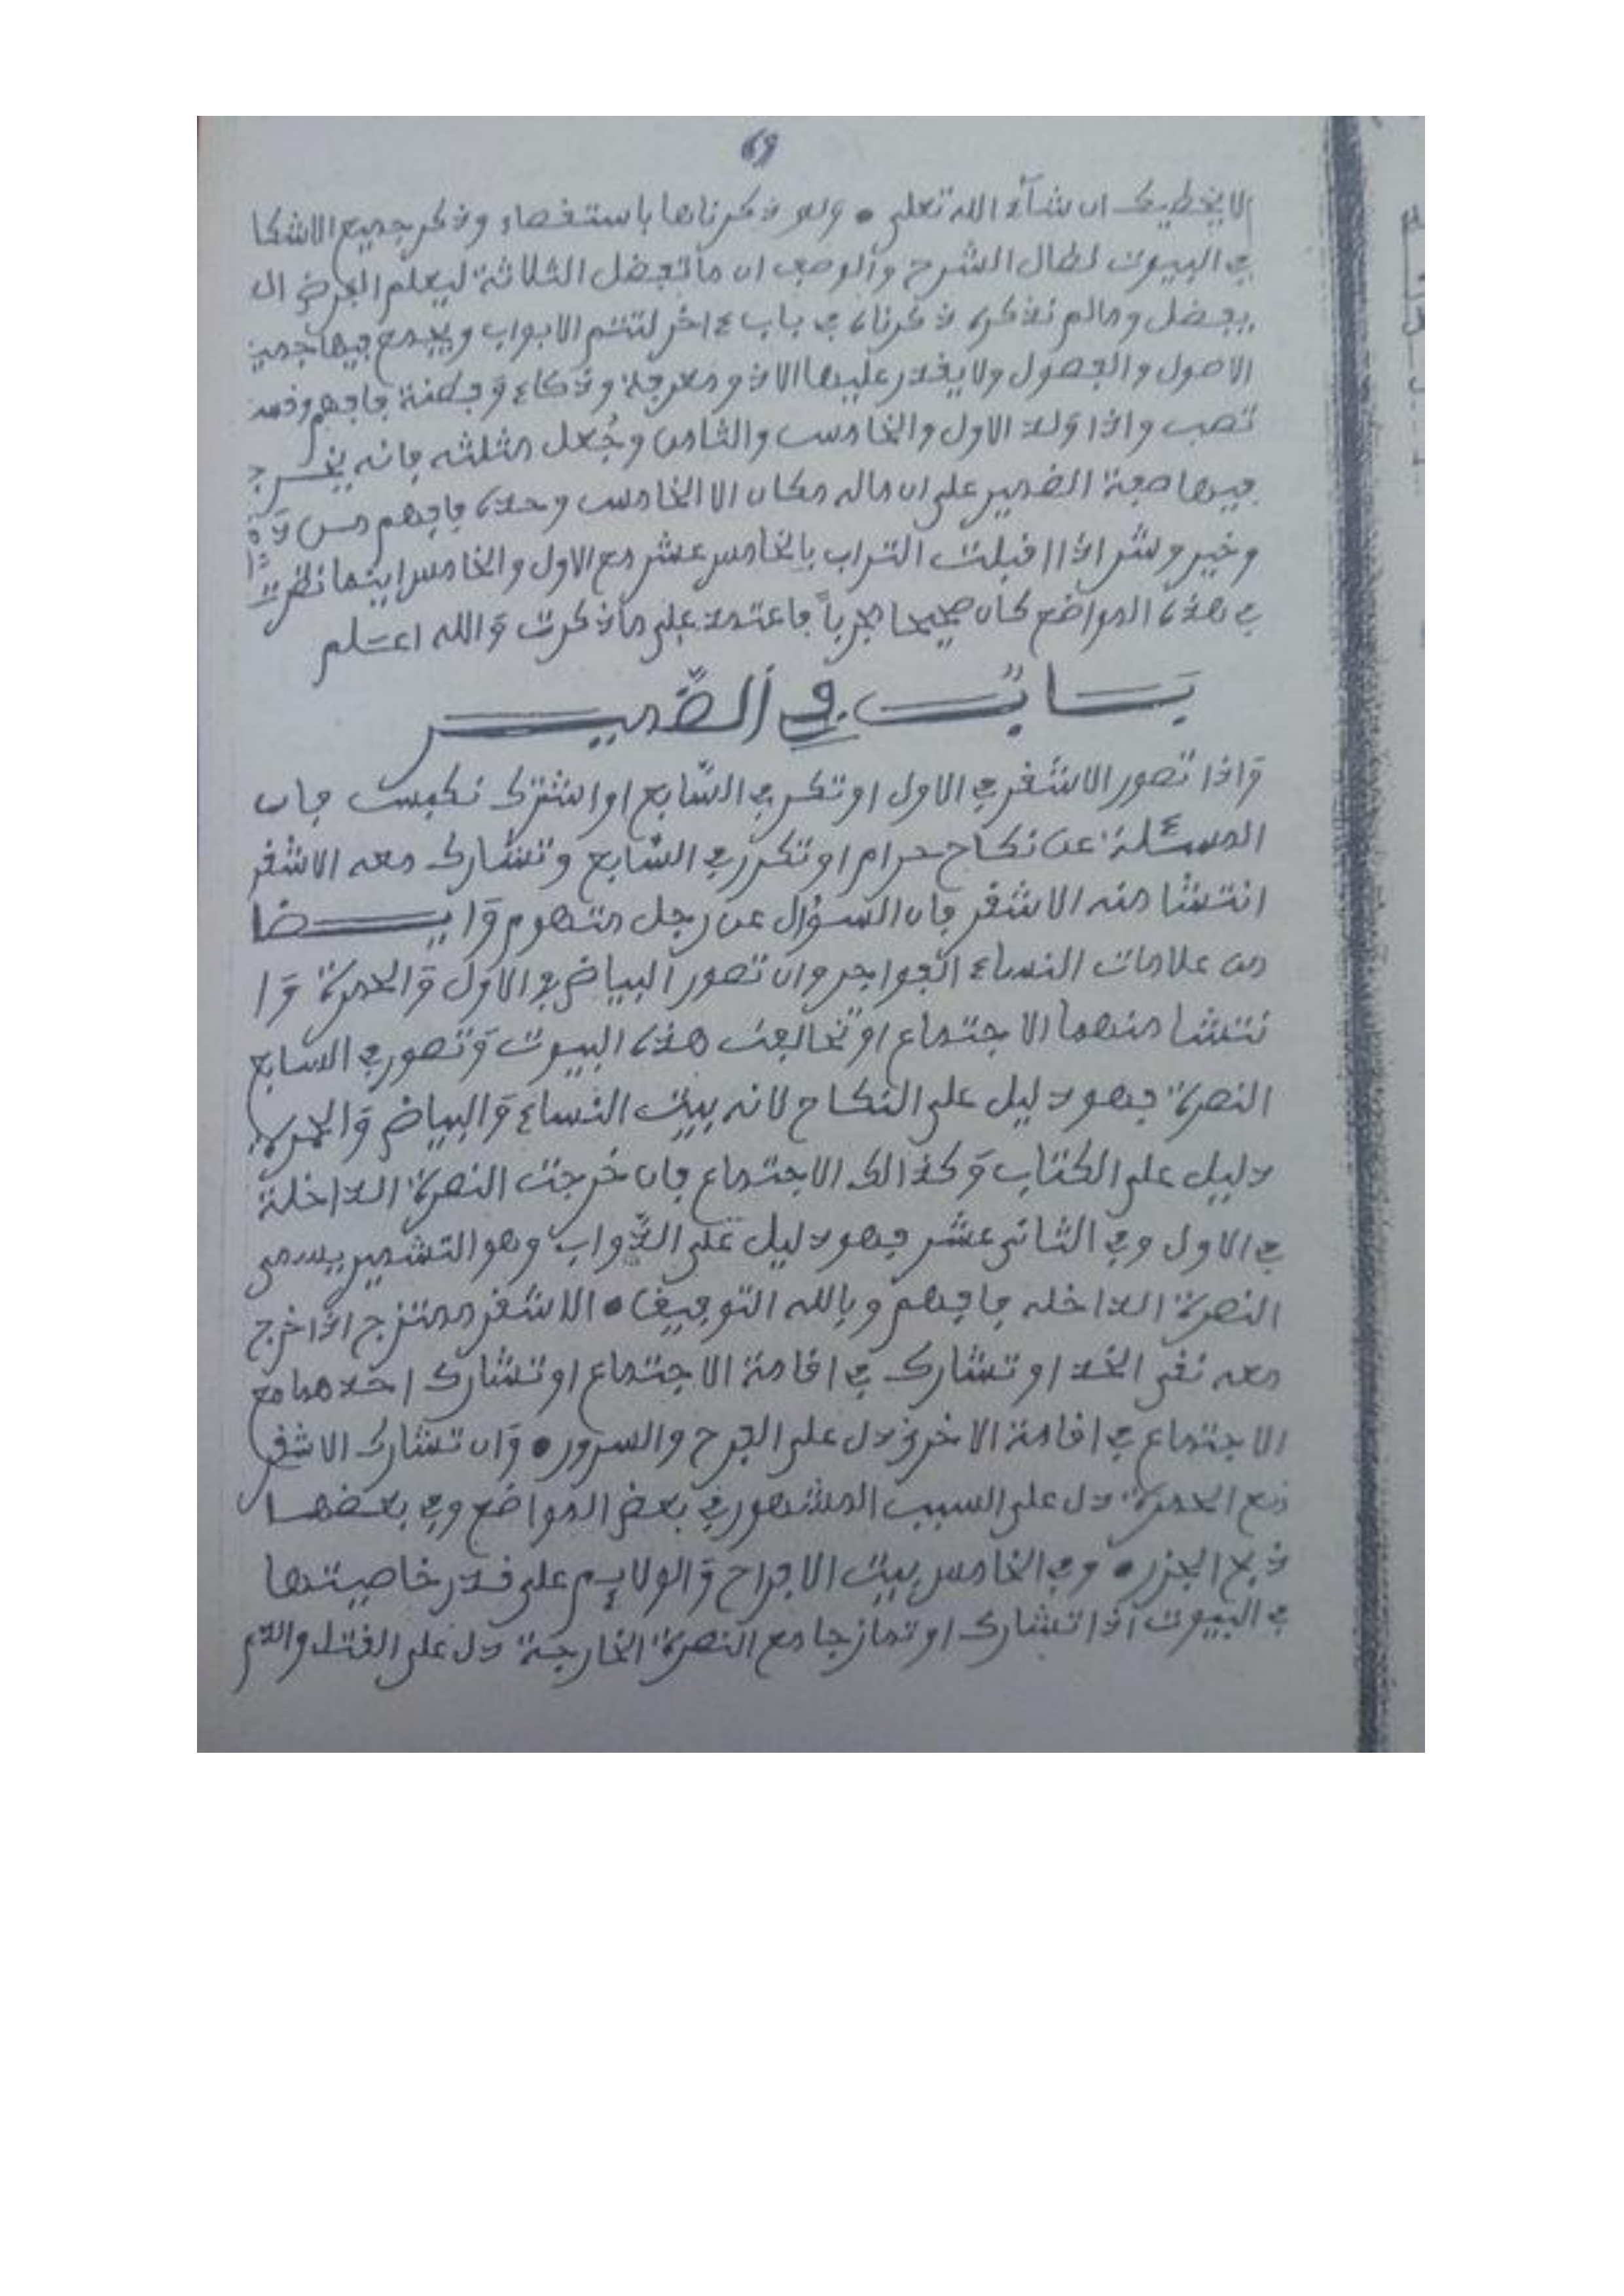 69
لا يخطيك ان شآء الله تعلى • ولو ذكرناها باستقصاء وذكر جميع الاشكا
في البيوت لطال الشرح والوصف ان ما تفضل الثلاثة ليعلم الغرض ال
يفضل وما لم نذكره ذكرناه في باب ءاخر لتتم الابواب ويجمع فيها جميع
الاصول والفصول ولا يقدر عليها الا ذو معرفة وذكاء وفطنة فافهم وقد
تصب واذا ولد الاول والخامس والثامن وجُعل مثلثه فانه يخرج
فيها صفة الضمير على ان ماله مكان الا الخامس وحده فافهم
وخير وشر اذا اقبلت التراب بالخامس عشر مع الاول والخامس اينما نظرت
في هذه المواضع كان صحيحا مجرباً فاعتمد على ما ذكرت والله اعلم
باب في الضمير
واذا تصور الاشقر في الاول او تكر في السابع او اشترك نكيس فان
المسئلة عن نكاح حرام او تكرر في السابع وتشارك معه الاشقر
انتشا منه الاشقر فان السؤال عن رجل متهوم وايضا
من علامات النساء الفواجر وان تصور البياض في الاول والحمرة وا
نتشا منهما الاجتماع او تخالفت هذه البيوت وتصور في السابع
النصرة فهو دليل على النكاح لانه بيت النساء والبياض والحمرة
دليل على الكتاب وكذالك الاجتماع فان خرجت النصرة الداخلة
في الاول وفي الثاني عشر فهو دليل على الدواب وهو التشمير يسمى
النصرة الداخله فافهم وبالله التوفيق • الاشقر ممتزج اذا خرج
معه نقي الخد او تشارك في اقامة الاجتماع او تشارك احدهما مع
الاجتماع في اقامة الاخر دل على الفرح والسرور • وان تشارك الاشقر
مع الحمرة دل على السبب المشهور في بعض المواضع وفي بعضها
ذبح الجزر • وفي الخامس بيت الافراح والولايم على قدر خاصيتها
في البيوت اذا تشارك او تمازجا مع النصرة الخارجة دل على القتل والدم